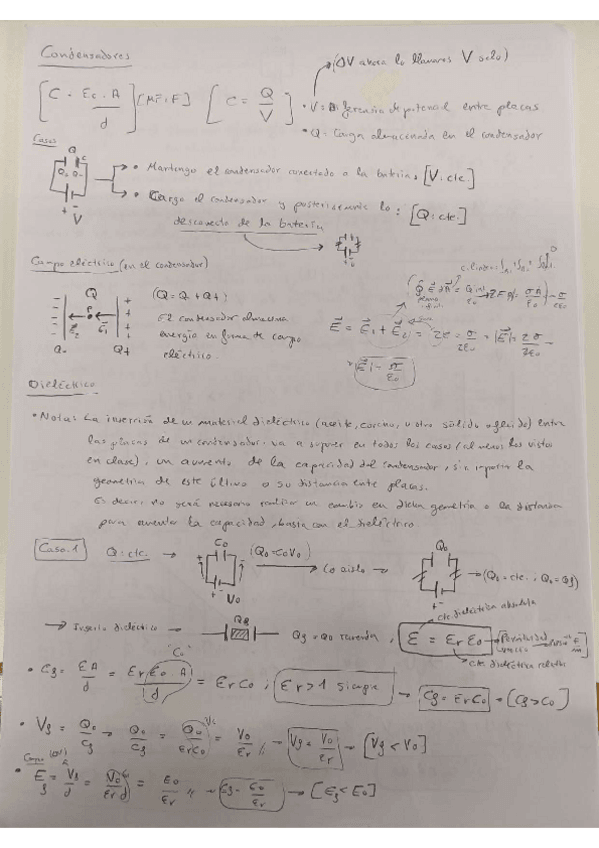 Condensadores
(ΔV ahora lo llamamos V solo)
[C = ε₀ · A / d] [MF: F] [C = Q / V]
• V = Diferencia de potencial entre placas
• Q = Carga almacenada en el condensador
Casos
• Mantengo el condensador conectado a la batería: [V: cte.]
• Cargo el condensador y posteriormente lo desconecto de la batería: [Q: cte.]
Campo eléctrico (en el condensador)
Q
(Q = Q- + Q+)
El condensador almacena
energía en forma de campo
eléctrico.
Q- Q+
E = E₁ + E₂ = 2E = σ / 2ε₀ = |E| = 2σ / 2ε₀
|E| = σ / ε₀
Dieléctrico
• Nota: La inserción de un material dieléctrico (aceite, corcho, u otro sólido o fluido) entre
las placas de un condensador, va a suponer en todos los casos (al menos los vistos
en clase), un aumento de la capacidad del condensador, sin importar la
geometría de este último o su distancia entre placas.
Es decir, no será necesario realizar un cambio en dicha geometría o la distancia
para aumentar la capacidad, basta con el dieléctrico.
Caso 1 Q: cte. → C₀ V₀ (Q₀ = C₀V₀) → Lo aíslo → Q₀ → (Q₀ = cte.; Q₀ = Qf)
cte dieléctrica absoluta
→ Inserto dieléctrico → Qf Qf = Q₀ recuerda, ε = εr ε₀
cte. dieléctrica relativa
• Cf = εA / d = εr ε₀ A / d = εr C₀ ; εr > 1 siempre → Cf = εr C₀ → [Cf > C₀]
• Vf = Q₀ / Cf → Q₀ / Cf = Q₀ / εr C₀ = V₀ / εr // → Vf = V₀ / εr → [Vf < V₀]
Campo
• Ef = Vf / d = V₀ / εr d = E₀ / εr // → Ef = E₀ / εr → [Ef < E₀]